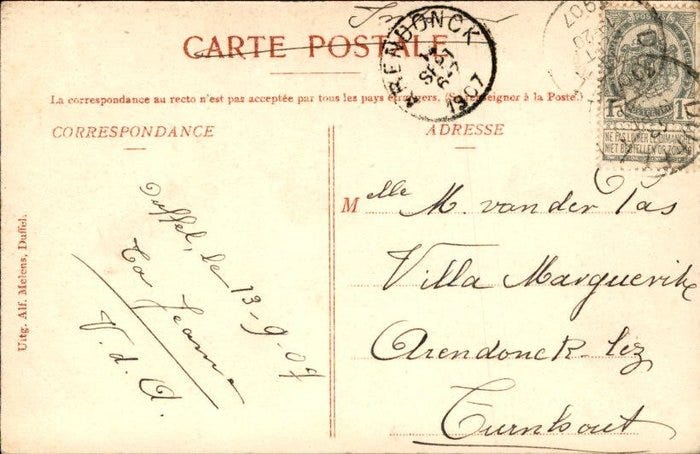 CARTE POSTALE
La correspondance au recto n'est pas acceptée par tous les pays étrangers. (Se renseigner à la Poste.)
CORRESPONDANCE
ADRESSE
Duffel, le 13-9-07
Jeanne
V. d. A.
Uitg. Alf. Melens, Duffel.
Melle M. van der Tas
Villa Marguerite
Arendonck-lez
Turnhout
ARENDONCK
SEPT
1907
1907
NE PAS LIVRER LE DIMANCHE
NIET BESTELLEN OP ZONDAG